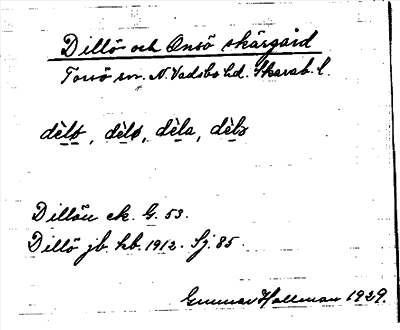 Dillö och Onsö skärgård
Torsö sn. N. Vadsbo hd. Skarab. l.
dèlø, dèlø, dèla, dèlə
Dillön ek. G. 53.
Dillö jb. hb. 1912. Sj. 85.
Gunnar Hallman 1929.